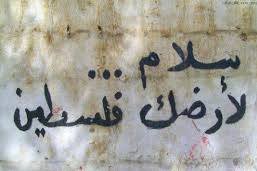 سلام ...
لأرضك فلسطين